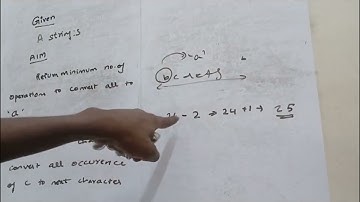 Given
A string: S
Aim
Return minimum no. of
operation to convert all to
'a'
convert all occurrence
of c to next character
'a' b
- 2 → 24 + 1 → 25